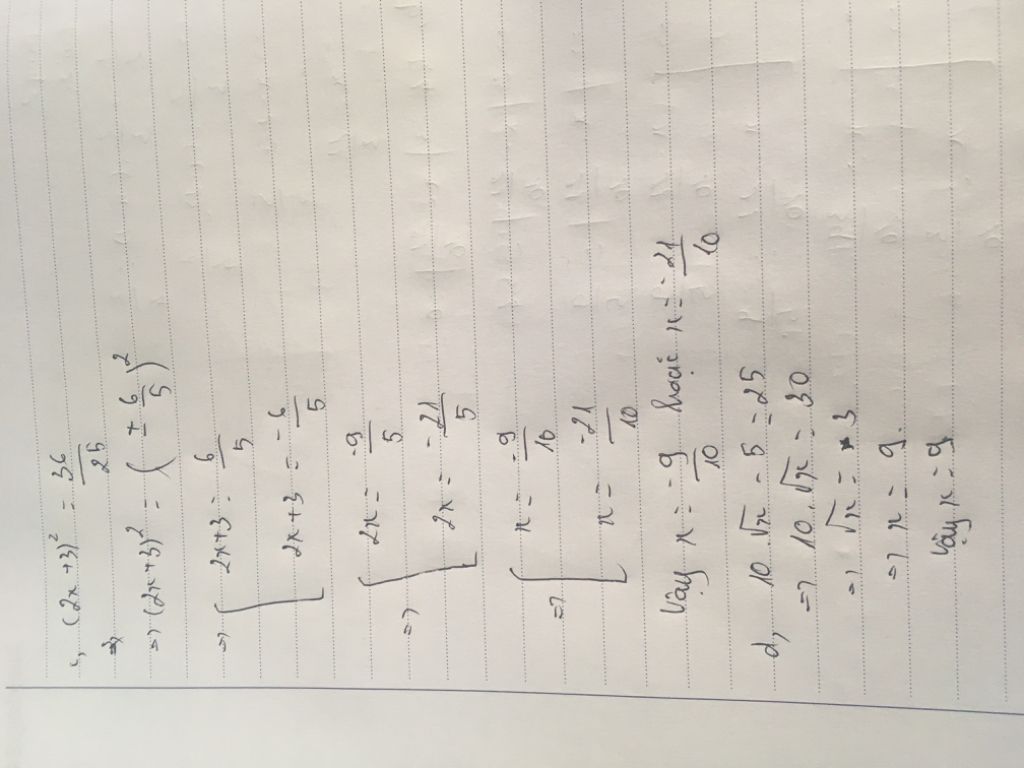 c, (2x + 3)² = 36/25
=> (2x+3)² = (± 6/5)²
=> [ 2x+3 = 6/5
2x+3 = -6/5
=> [ 2x = -9/5
2x = -21/5
=> [ x = -9/10
x = -21/10
Vậy x = -9/10 hoặc x = -21/10
d, 10 √x - 5 = 25
=> 10.√x = 30
=> √x = 3
=> x = 9.
Vậy x = 9